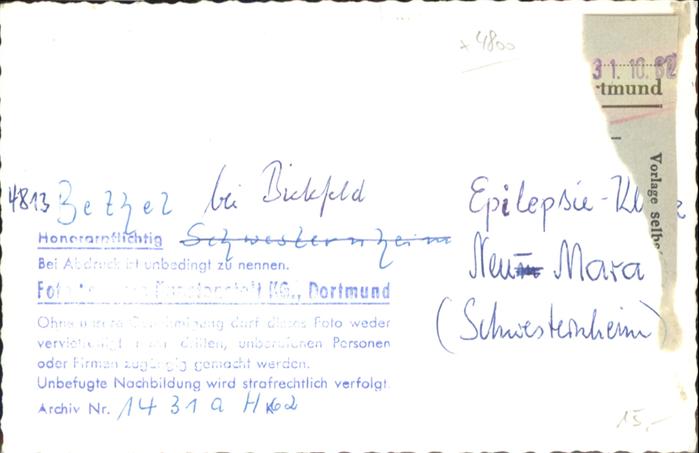 x 4800
31. 10. 62
tmund
Vorlage selbst
4813 Bethel bei Bielefeld
Epilepsie-Kl
Honorarpflichtig Schwesternheim
Neu Mara
Bei Abdruck ist unbedingt zu nennen.
Foto KG., Dortmund
(Schwesternheim)
Ohne unsere Genehmigung darf dieses Foto weder
vervielfältigt noch dritten, unberufenen Personen
oder Firmen zugängig gemacht werden.
Unbefugte Nachbildung wird strafrechtlich verfolgt.
Archiv Nr. 1431a H 62
15,-